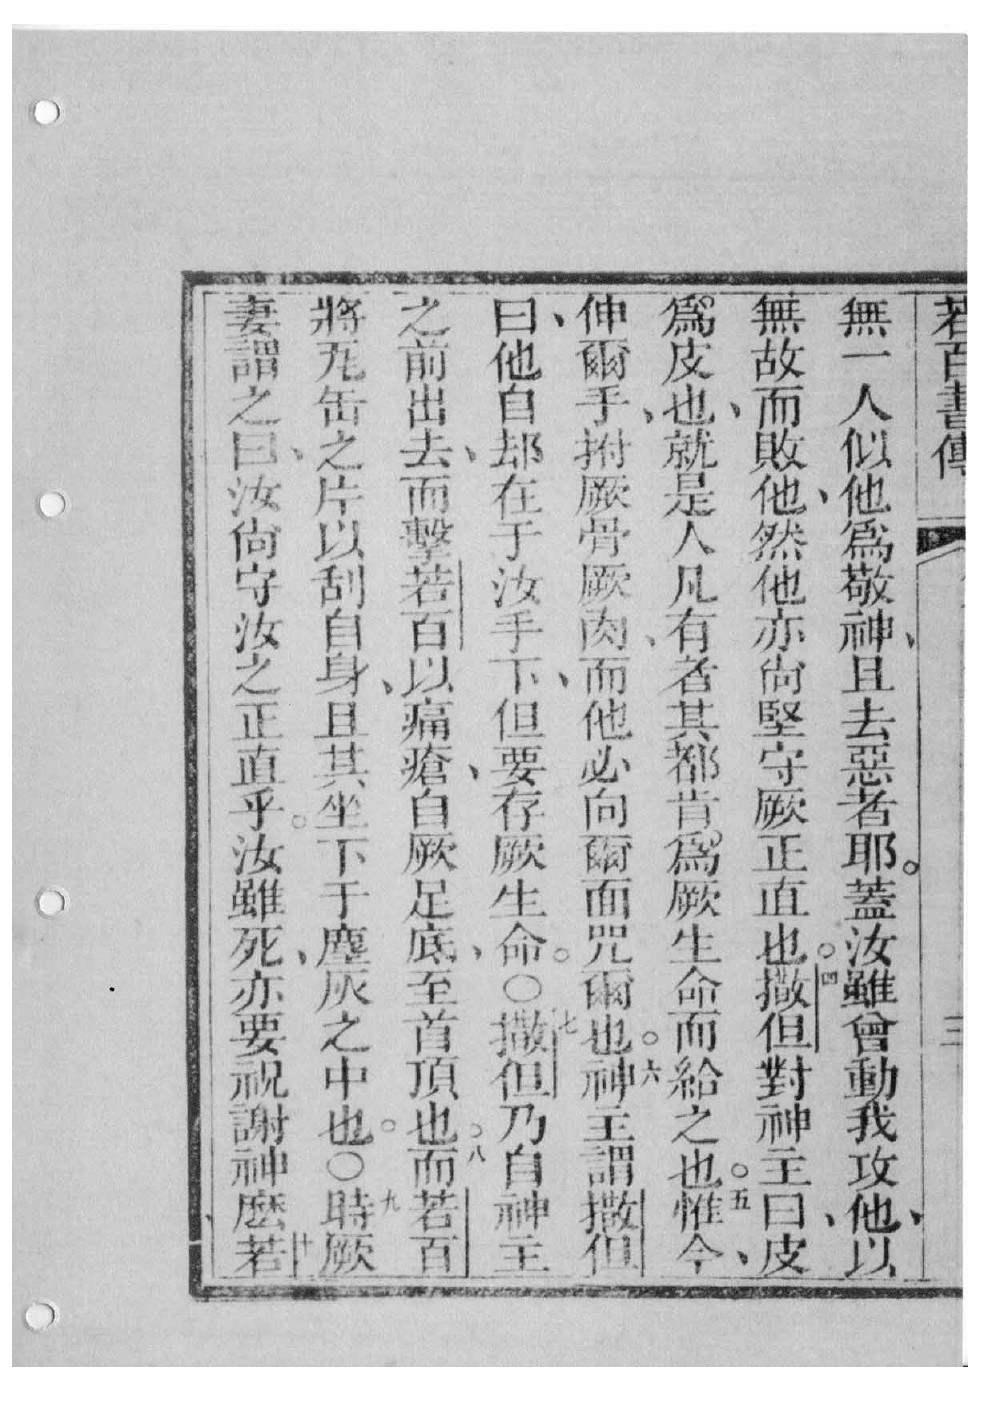 若百書傳 三
無一人似他爲敬神、且去惡者耶。蓋汝雖曾動我攻他、以
無故而敗他、然他亦尙堅守厥正直也。四撒但對神主曰、皮
爲皮也、就是人凡有者其都肯爲厥生命而給之也。五惟今、
伸爾手、拊厥骨厥肉、而他必向爾面咒爾也。六神主謂撒但
曰、他自却在于汝手下、但要存厥生命。○七撒但乃自神主
之前出去、而擊若百以痛瘡、自厥足底、至首頂也。八而若百
將瓦缶之片以刮自身、且其坐下于塵灰之中也。○九時厥
妻謂之曰、汝尙守汝之正直乎。汝雖死、亦要祝謝神麽、十若